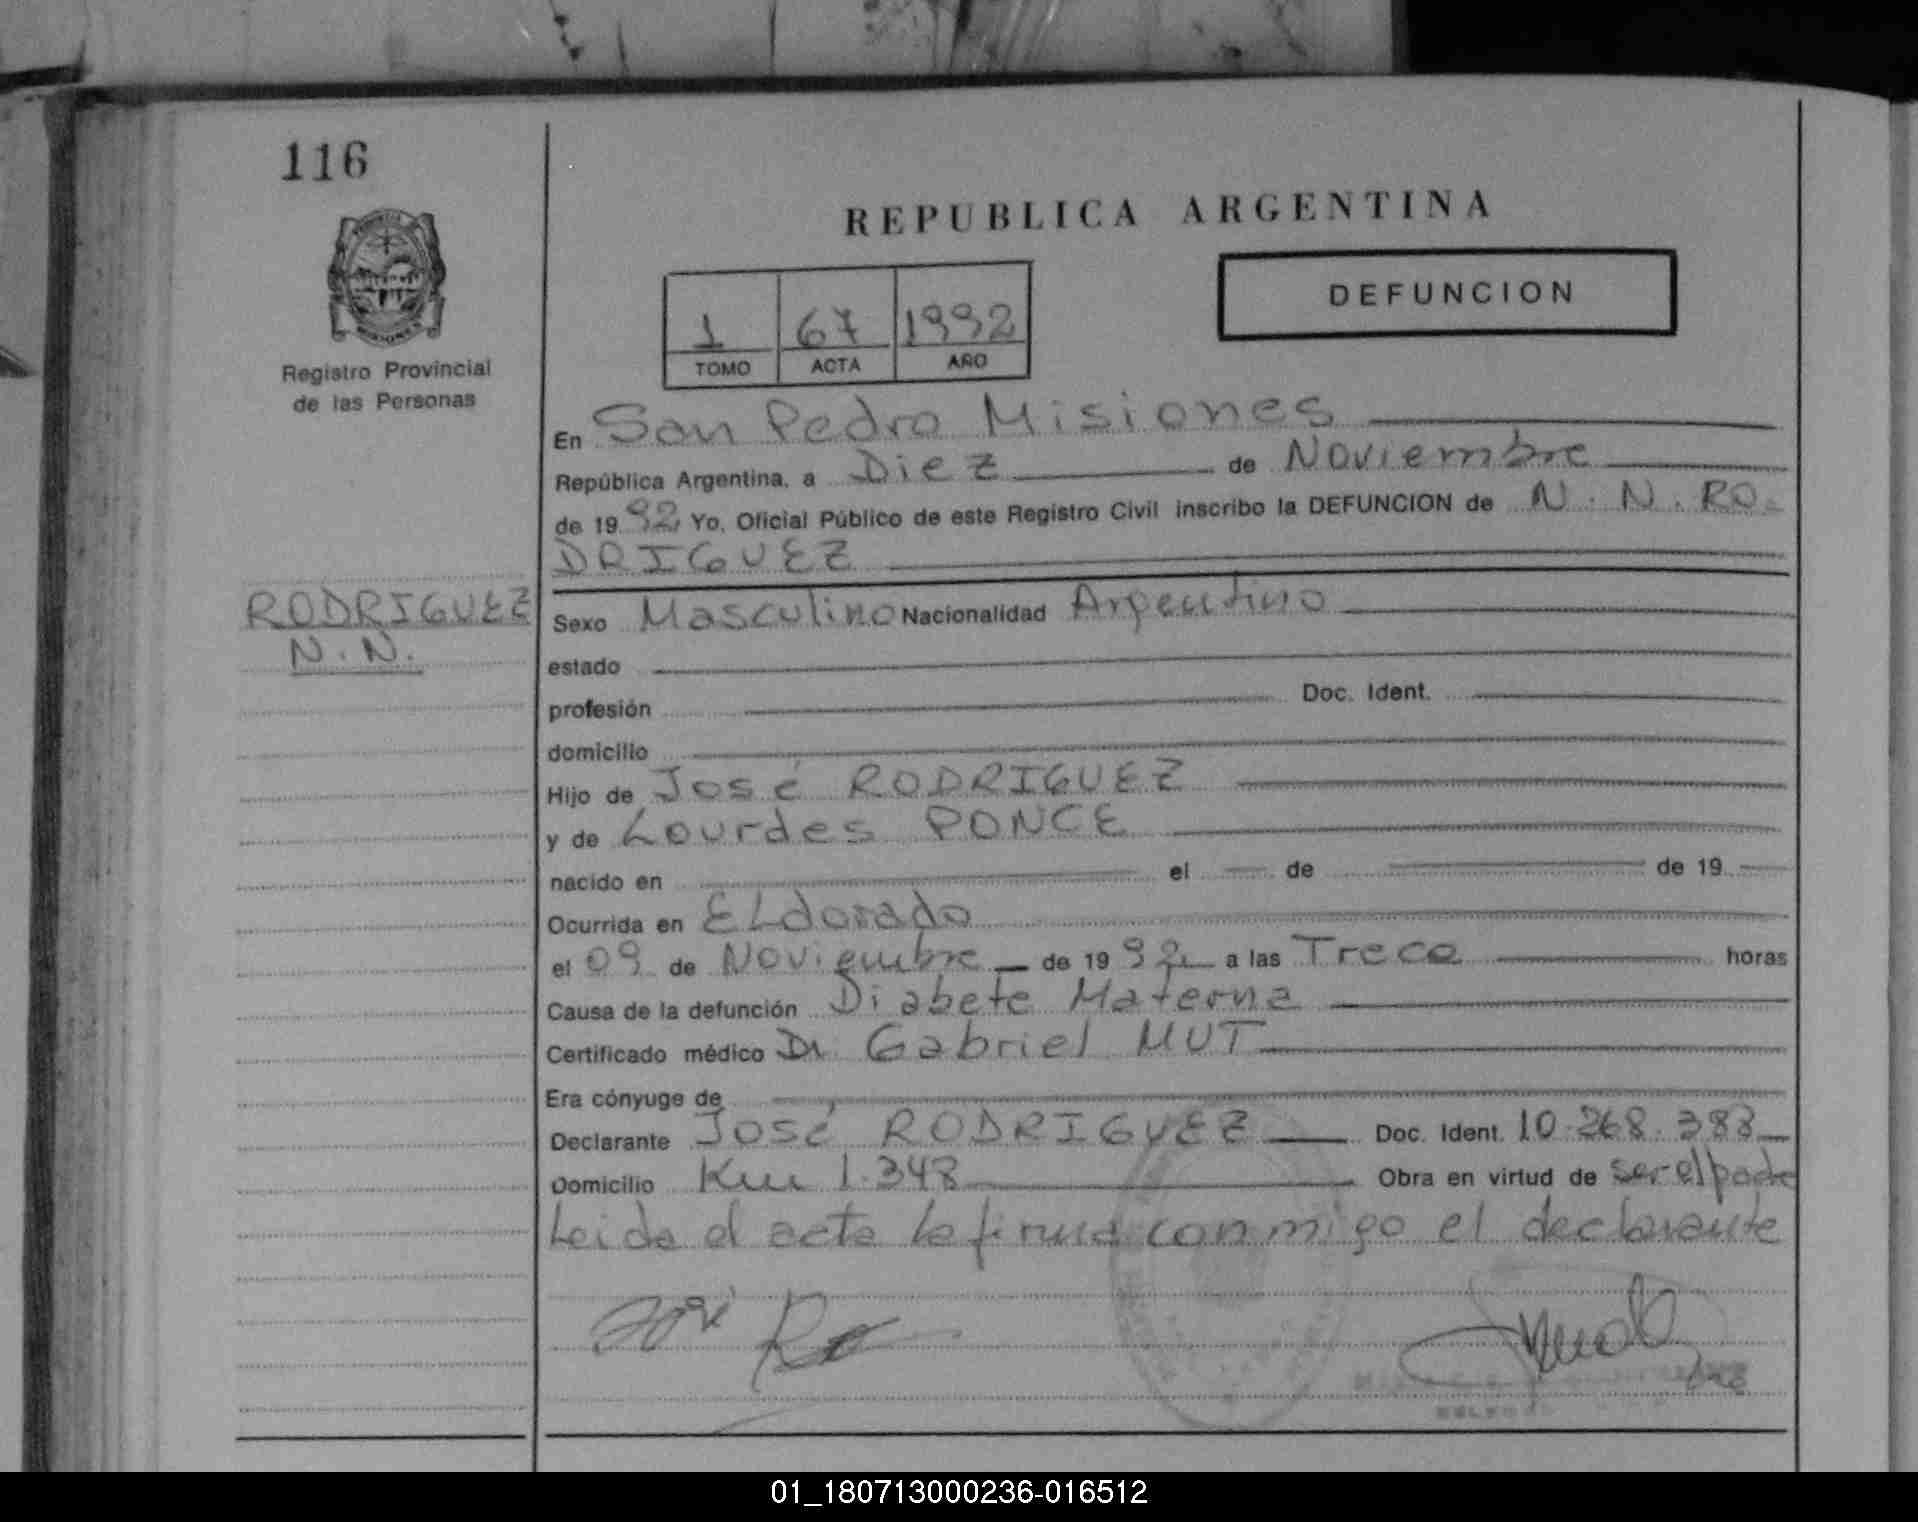 116
REPUBLICA ARGENTINA
DEFUNCION
1 67 1992
TOMO ACTA AÑO
Registro Provincial
de las Personas
En San Pedro Misiones
República Argentina, a Diez de Noviembre
de 1992 Yo, Oficial Público de este Registro Civil inscribo la DEFUNCION de N.N. RO-
DRIGUEZ
RODRIGUEZ
N.N.
Sexo Masculino Nacionalidad Argentino
estado
profesión Doc. Ident.
domicilio
Hijo de José RODRIGUEZ
y de Lourdes PONCE
nacido en el de de 19
Ocurrida en ELdorado
el 09 de Noviembre de 1992 a las Trece horas
Causa de la defunción Diabete Materna
Certificado médico Dr Gabriel MUT
Era cónyuge de
Declarante José RODRIGUEZ Doc. Ident. 10.268.383
Domicilio Km 1.348 Obra en virtud de ser el padre
Leida el acta la firma conmigo el declarante
José
01_180713000236-016512